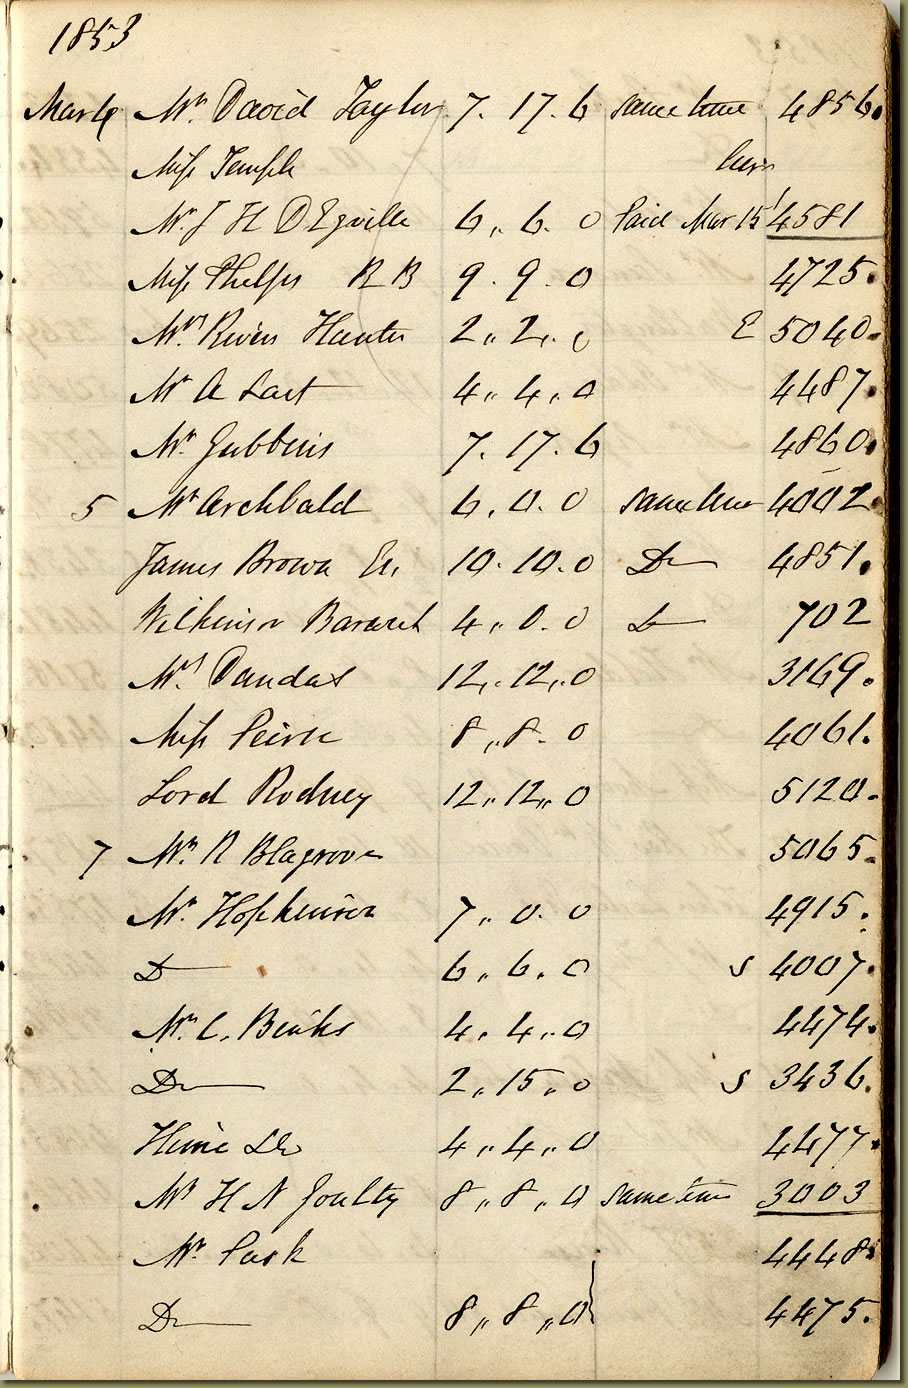 1853
Mar 4 Mr. David Taylor 7. 17. 6 same time 4856.
Miss Temple
Mr. J H D'Egville 6,, 6. 0 Paid Mar 15 4581
Miss Phelps R B 9. 9. 0 4725.
Mrs. Hunter 2,, 2,. 0 E 5040.
Mr A Last 4,, 4,, 0 4487.
Mr. Gubbins 7. 17. 6 4860.
5 Mr Archbald 6. 0. 0 same time 4002
James Brown 10. 10. 0 Do 4851.
Wilkinson 4,, 0. 0 Do 702
Mrs. Dundas 12,. 12,. 0 3169.
Miss Peirse 8,, 8. 0 4061.
Lord Rodney 12,, 12,, 0 5120.
7 Mr. R Blagrove 5065.
Mr. Hopkinson 7,, 0. 0 4915.
Do 6,, 6. 0 S 4007.
Mr. C. Binks 4. 4,. 0 4474.
Do 2,, 15,, 0 S 3436.
4,, 4,, 0 4477.
Mr H N Goulty 8,, 8,, 0 same time 3003
Mr. Pask 4448
Do 8,, 8,, 0 4475.